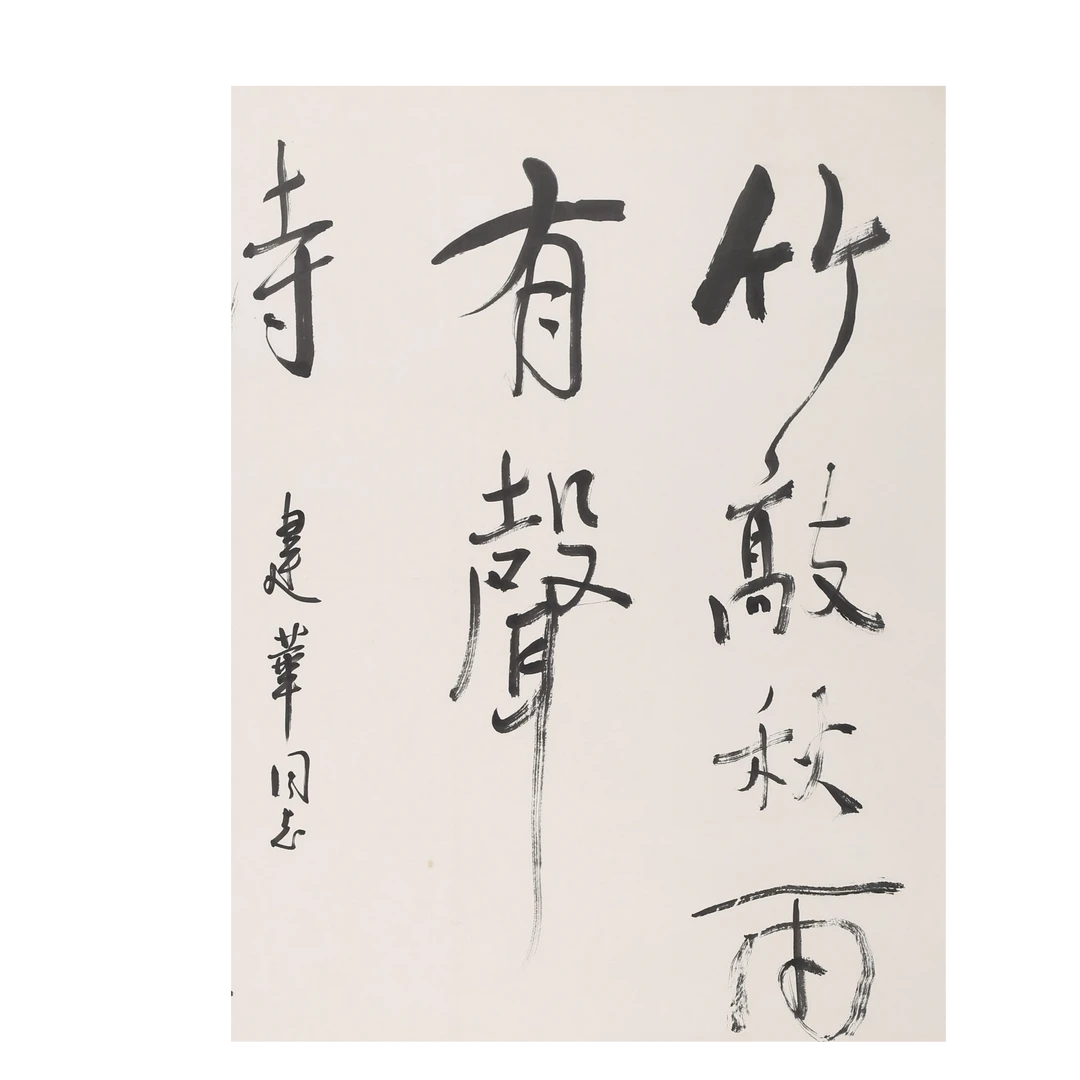 竹敲秋雨
有聲
寺 建華同志